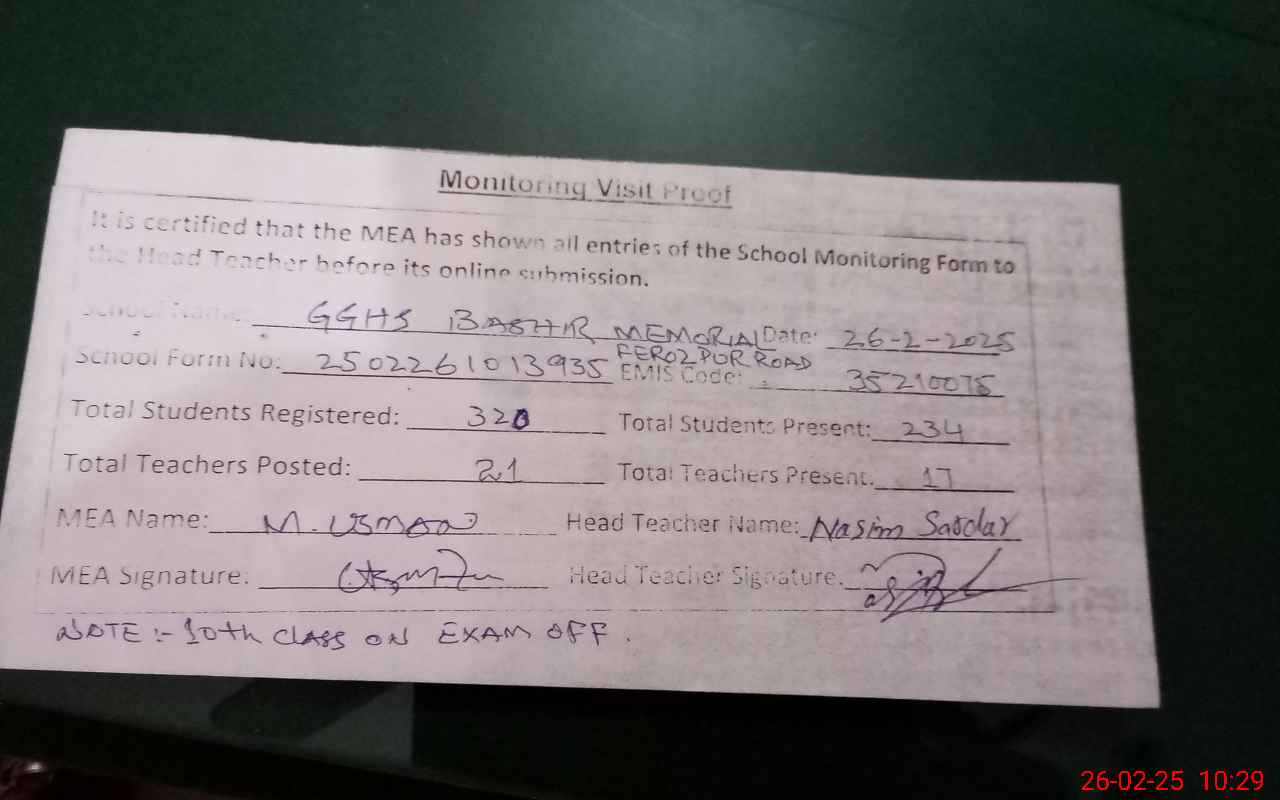 Monitoring Visit Proof
It is certified that the MEA has shown all entries of the School Monitoring Form to
the Head Teacher before its online submission.
School Name: GGHS BASHIR MEMORIAL Date: 26-2-2025
FEROZPUR ROAD
School Form No: 2502261013935 EMIS Code:
Total Students Registered: 320 Total Students Present: 234
Total Teachers Posted: 21 Total Teachers Present: 17
MEA Name: M. USMAN Head Teacher Name: Nasim Sardar
MEA Signature: Head Teacher Signature:
NOTE :- 10th CLASS ON EXAM OFF.
26-02-25 10:29